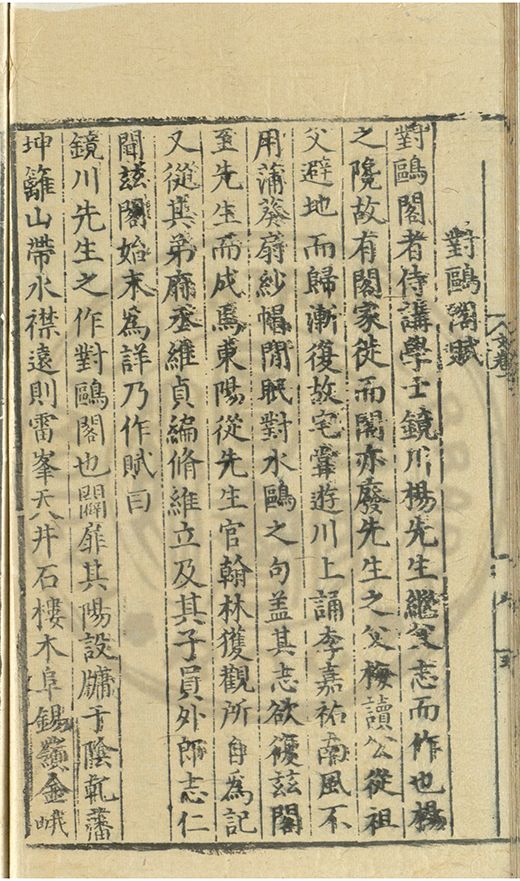 對鷗閣賦
對鷗閣者侍講學士鏡川楊先生繼父志而作也楊
之隩故有閣家徙而閣亦廢先生之父梅讀公從祖
父避地而歸漸復故宅嘗遊川上誦李嘉祐南風不
用蒲葵扇紗帽閒眠對水鷗之句盖其志欲復茲閣
至先生而成焉東陽從先生官翰林獲觀所自為記
又從其弟府丞維貞編脩維立及其子員外郎志仁
聞茲閣始末為詳乃作賦曰
鏡川先生之作對鷗閣也闢扉其陽設牖于陰乾藩
坤籬山帶水襟遠則雷峯天井石樓木阜錫嶺金峨